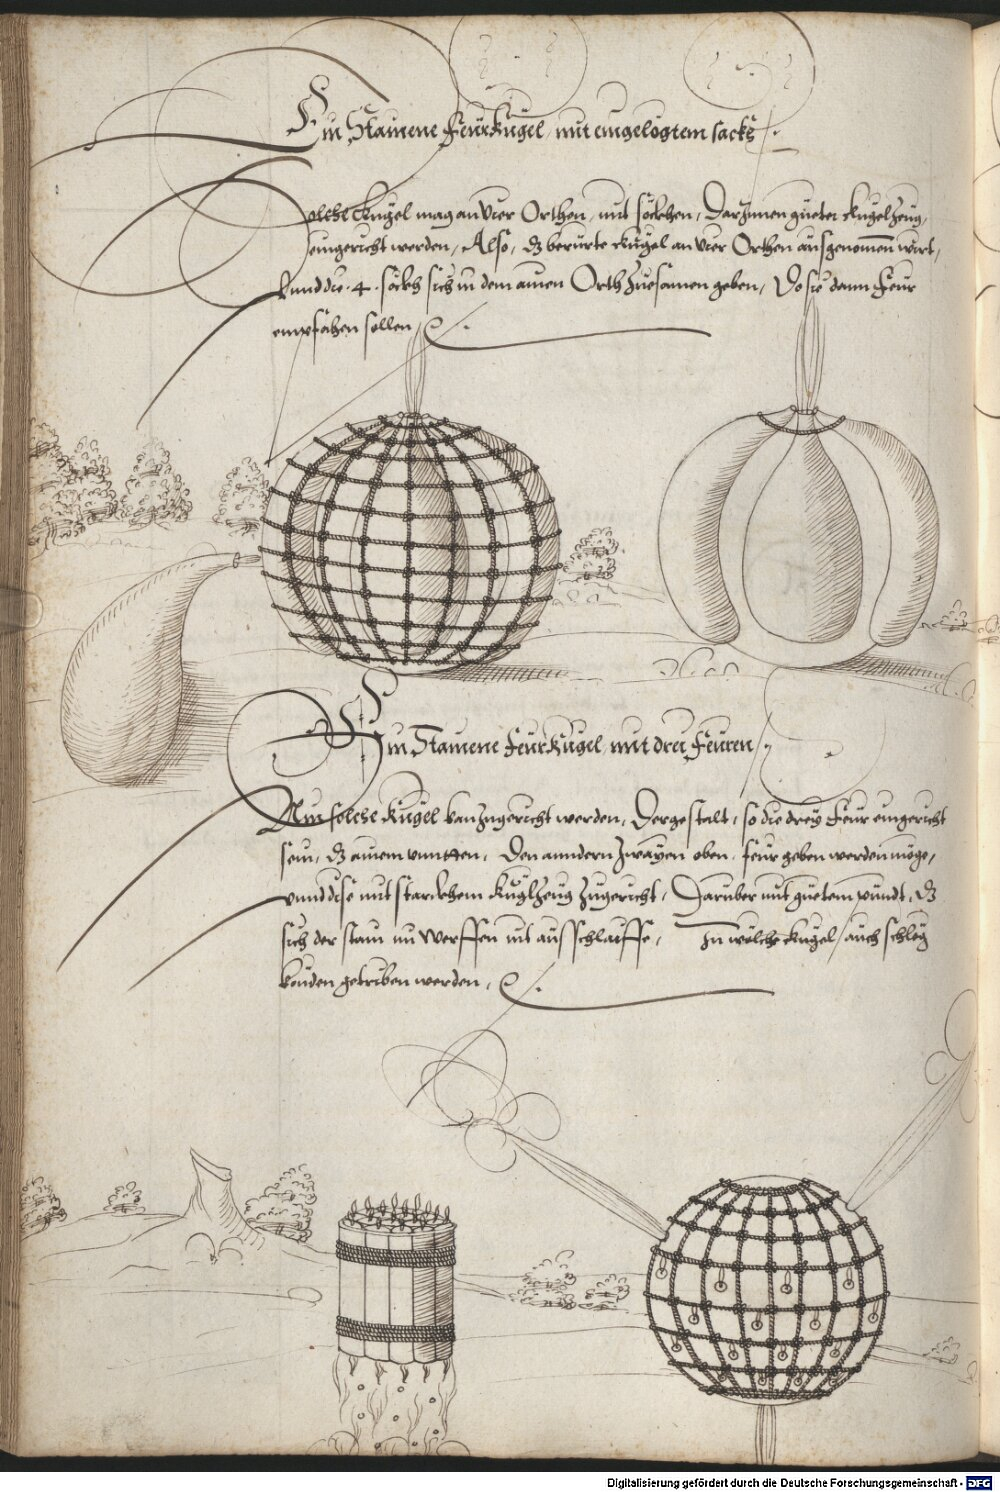 Ein Stainene Feürkugel, mit eingelögtem sackh
Solche Kugel mag an Vier Orthen, mit söckhen, Darinnen gueter Kugelzeug,
eingericht werden, Also, dz berürte Kugel an vier Orthen ausgenomen wirt,
Unnd die .4. söckh sich in dem ainen Orth zuesamen geben, Do sie dann Feur
empfahen sollen
Ein Stainene Feurkugel, mit drei Feuren
Ain solche Kugel kan zugericht werden, Dergestalt, so die drey Feur eingericht
sein, dz ainem unntten, Den anndern zwayen oben, feur geben werden möge,
unnd dise mit starckhem Kuglzeug zugericht, Darüber mit guetem pundt, dz
sich der stain im Werffen nit aufschlaiffe, In wölche Kugel, auch schleg
künden getriben werden,
Digitalisierung gefördert durch die Deutsche Forschungsgemeinschaft - DFG